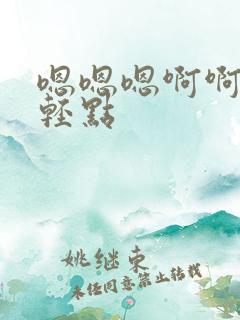 嗯嗯嗯啊啊
轻點
姚继东
未经同意禁止转载